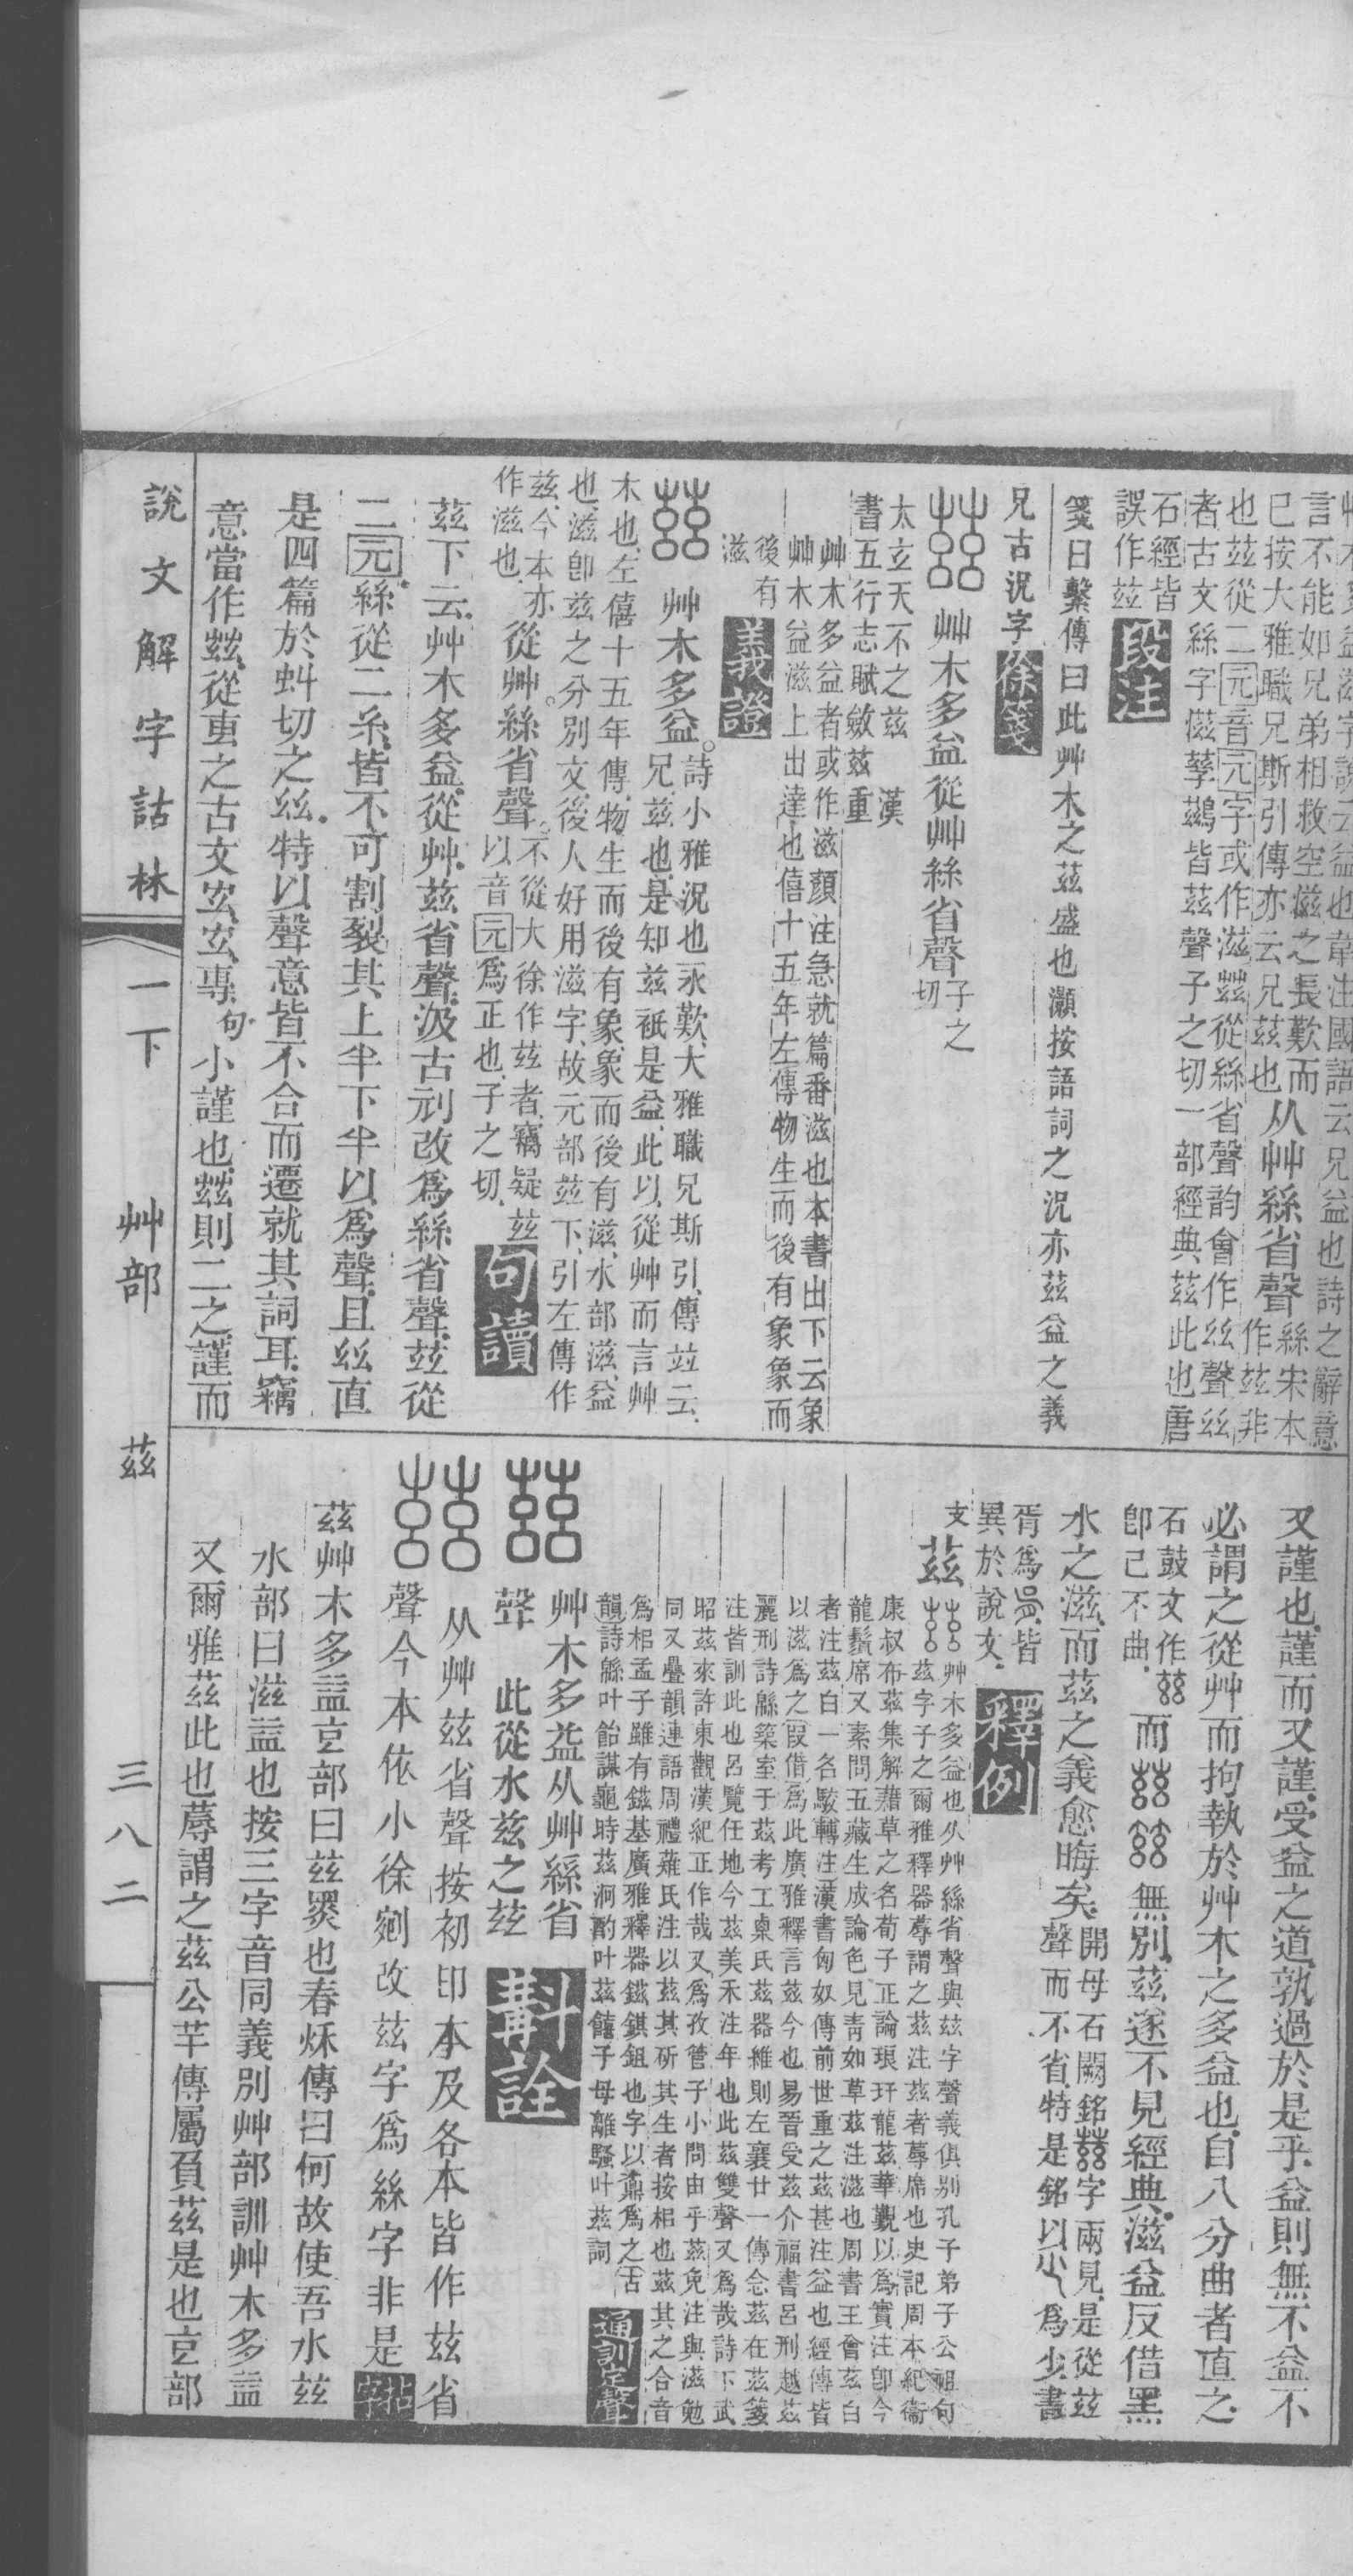 言不能如兄弟相救空滋之長歎而
已按大雅職兄斯引傳亦云兄茲也
从艸絲省聲
絲宋本
作茲非
也茲從二元音元字或作滋茲從絲省聲韵會作丝聲丝
者古文絲字滋孳鷀皆茲聲子之切一部經典茲此也唐
石經皆
誤作茲
段注
箋曰繫傳曰此艸木之茲盛也灝按語詞之況亦茲益之義
兄古況字徐箋
艸木多益從艸絲省聲
子之
切
太玄天不之茲 漢
書五行志賦斂茲重
艸木多益者或作滋顏注急就篇番滋也本書出下云象
艸木益滋上出達也僖十五年左傳物生而後有象象而
後有
滋
義證
艸木多益。
詩小雅況也永歎、大雅職兄斯引、傳竝云、
兄、茲也、是知茲衹是益、此以從艸而言艸
木也、左僖十五年傳、物生而後有象、象而後有滋、水部滋、益
也、滋卽茲之分別文、後人好用滋字、故元部茲下、引左傳作
茲、今本亦
作滋也、
從艸。絲省聲。
不從大徐作茲者、竊疑茲
以音元爲正也、子之切、
句讀
茲下云、艸木多益、從艸、茲省聲、汲古刓改爲絲省聲、茲從
二元、絲從二糸、皆不可割裂其上半下半以爲聲、且丝直
是四篇於虯切之丝、特以聲意皆不合而遷就其詞耳、竊
意當作茲、從叀之古文玄、玄、專、句小謹也、茲則二之、謹而
說文解字詁林
一下
艸部
茲
三八二
又謹也、謹而又謹、受益之道、孰過於是乎、益則無不益、不
必謂之從艸而拘執於艸木之多益也、自八分曲者直之、
石鼓文作
卽已不曲、
而
無別、茲遂不見經典、滋益反借黑
水之滋、而茲之義愈晦矣、
開母石闕銘
字兩見、是從茲
聲而不省、特是銘以小爲少、書
胥爲
皆
異於說文、
釋例
支
茲
艸木多益也从艸絲省聲與茲字聲義俱別孔子弟子公祖句
茲字子之爾雅釋器蓐謂之茲注茲者蓐席也史記周本紀衞
康叔布茲集解藉草之名荀子正論琅玕龍茲華覲以爲實注卽今
龍鬚席又素問五藏生成論色見靑如草茲注滋也周書王會茲白
者注茲白一名駮轉注漢書匈奴傳前世重之茲甚注益也經傳皆
以滋爲之叚借爲此廣雅釋言茲今也易晉受茲介福書呂刑越茲
麗刑詩緜築室于茲考工㮚氏茲器維則左襄廿一傳念茲在茲箋
注皆訓此也呂覽任地今茲美禾注年也此茲雙聲又爲哉詩下武
昭茲來許東觀漢紀正作哉又爲孜管子小問由乎茲免注與滋勉
同又疊韻連語周禮薙氏注以茲其斫其生者按相也茲其之合音
爲相孟子雖有鎡基廣雅釋器鎡錤鉏也字以鼒爲之古
韻詩緜叶飴謀龜時茲泂酌叶茲饎子母離騷叶茲詞
通訓定聲
艸木多益从艸絲省
聲　此從水茲之茲
斠詮
从艸茲省聲按初印本及各本皆作茲省
聲今本依小徐剜改茲字爲絲字非是
茲艸木多益玄部曰茲黑也春秋傳曰何故使吾水茲
水部曰滋益也按三字音同義別艸部訓艸木多益
又爾雅茲此也蓐謂之茲公羊傳屬負茲是也玄部